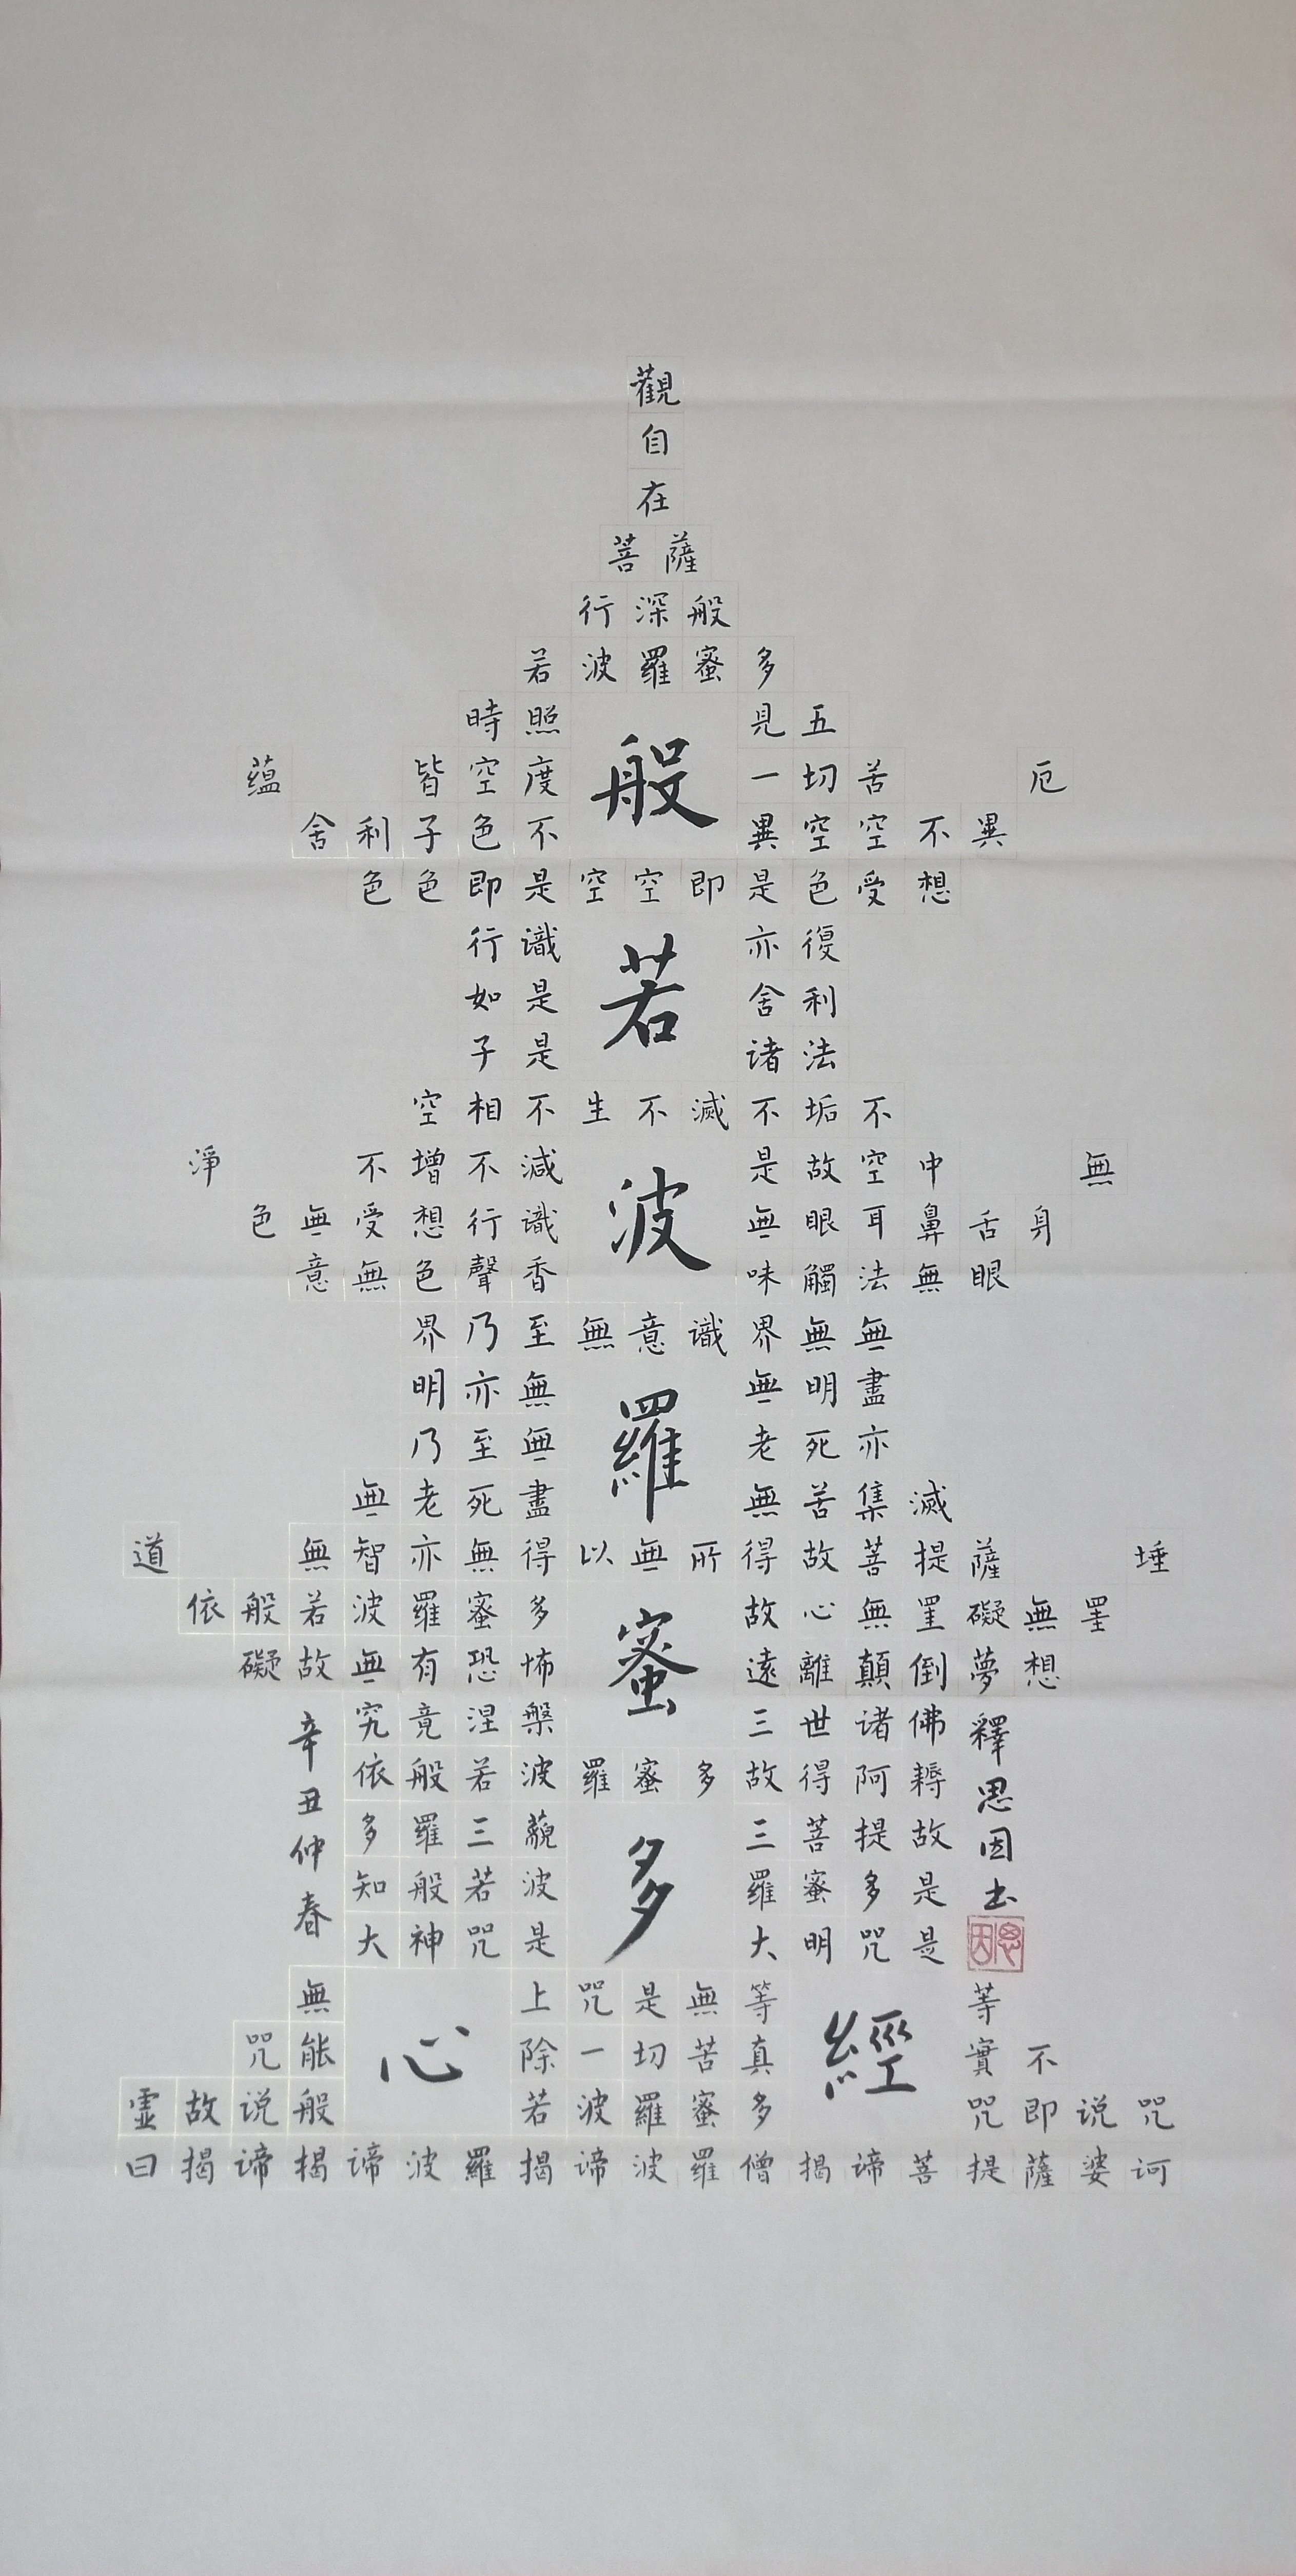 觀
自
在
菩薩
行深般
若波羅蜜多
時照見五
蘊皆空度一切苦厄
舍利子色不異空空不異
色色即是空空即是色受想
行識亦復
如是舍利
子是諸法
空相不生不滅不垢不
淨不增不減是故空中無
色無受想行識無眼耳鼻舌身
意無色聲香味觸法無眼
界乃至無意識界無無
明亦無無明盡
乃至無老死亦
無老死盡無苦集滅
道無智亦無得以無所得故菩提薩埵
依般若波羅蜜多故心無罣礙無罣
礙故無有恐怖遠離顛倒夢想
究竟涅槃三世諸佛
依般若波羅蜜多故得阿耨
多羅三藐三菩提故
知般若波羅蜜多是
大神咒是大明咒是
無上咒是無等等
咒能除一切苦真實不
虛故说般若波羅蜜多咒即说咒
曰揭谛揭谛波羅揭谛波羅僧揭谛菩提薩婆诃
般
若
波
羅
蜜
多
心經
辛丑仲春
釋恩因书
恩因